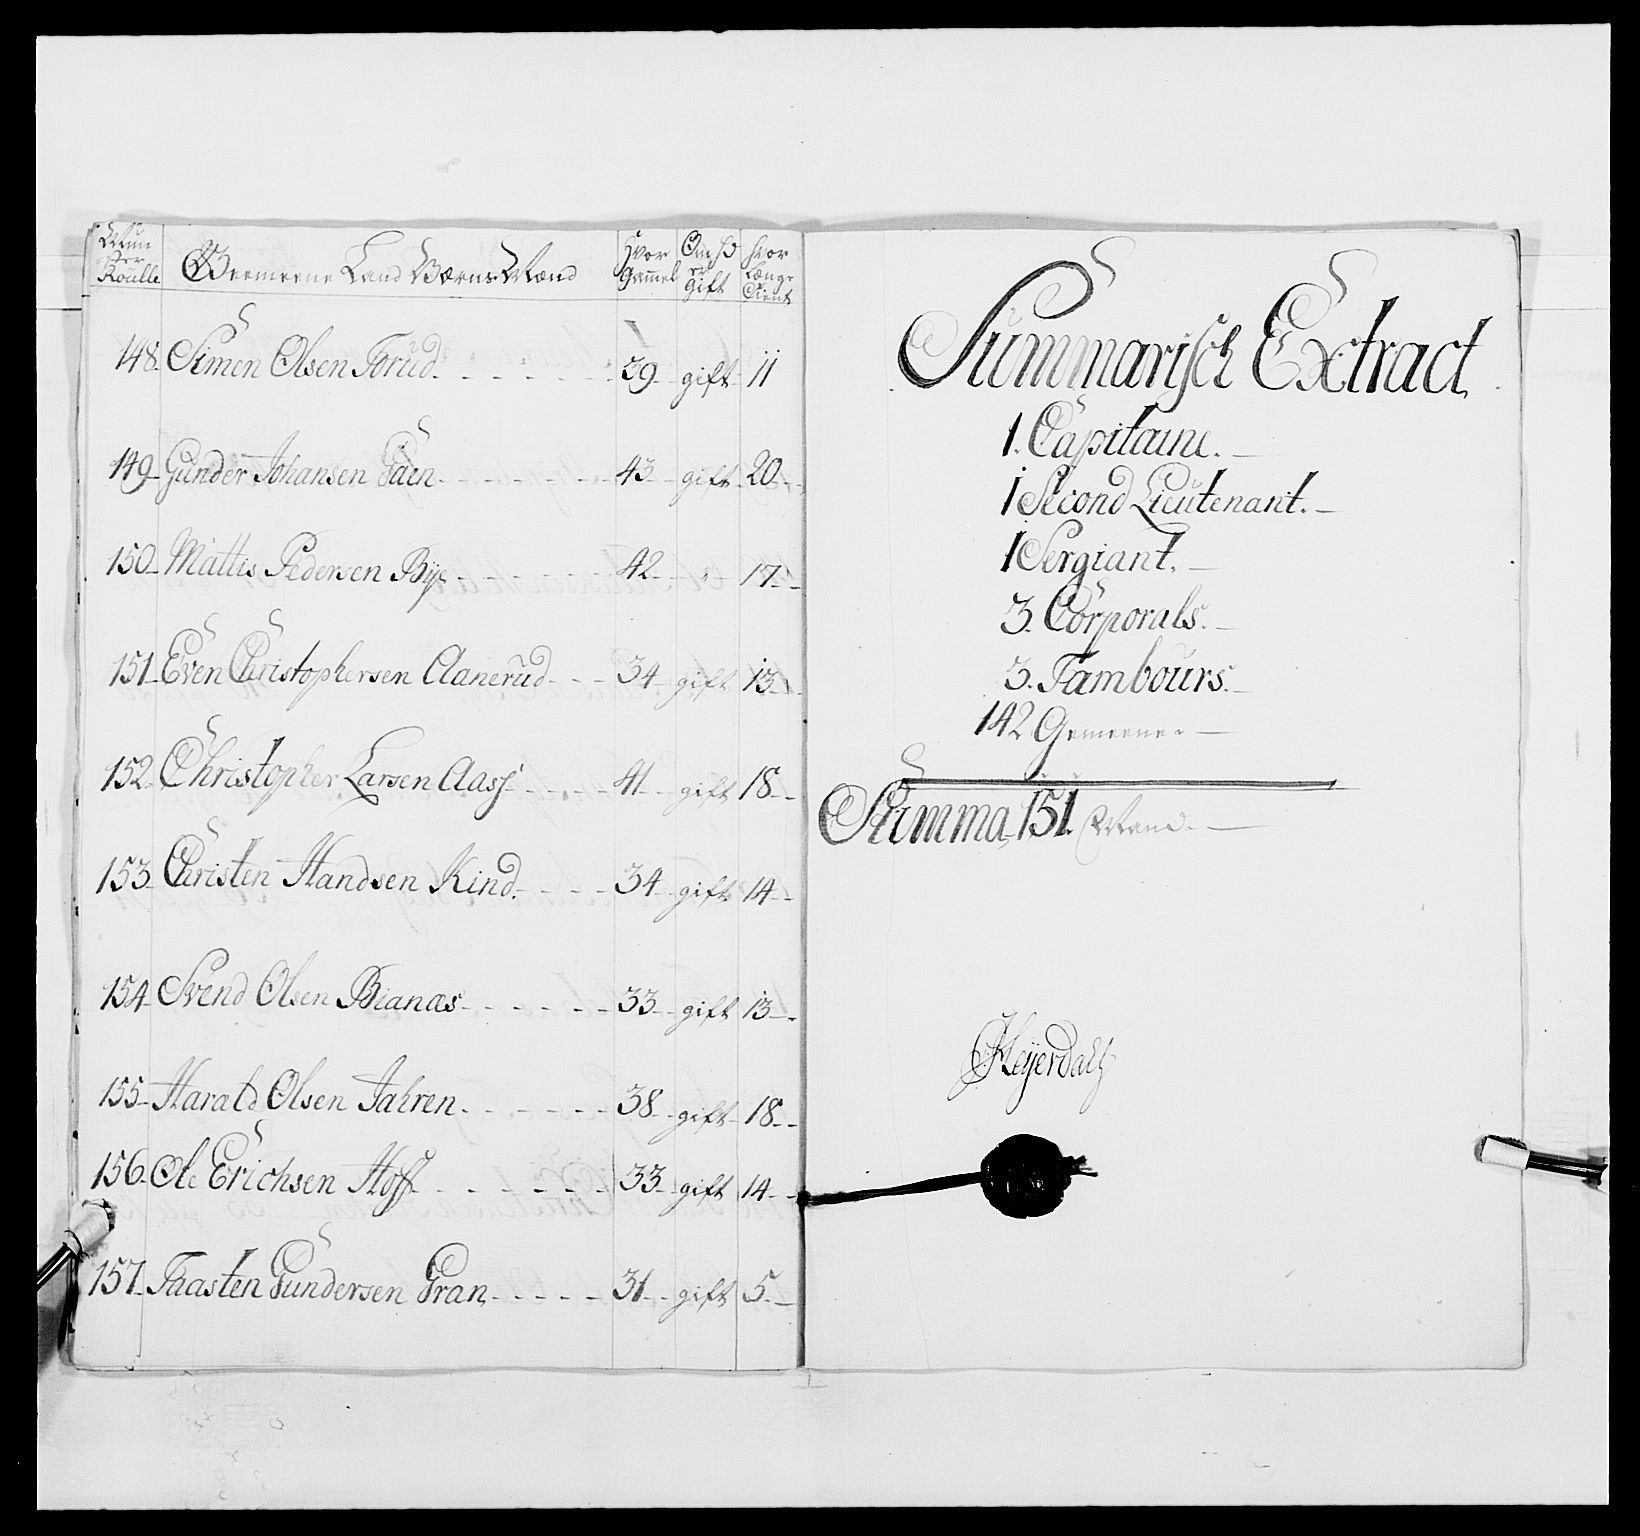 Num
Roulle
Gemeene Land Værns Mænd
Hvor Gammel
Om hand er Gift
hvor Længe Tient
148. Simen Olsen Torud 39 gift 11
149 Gunder Johansen Gaen 43 gift 20
150 Mattis Pedersen Bye 42 " 17
151 Even Christophersen Aanerud 34 gift 13
152 Christopher Larsen Aass 41 gift 18
153 Christen Handsen Kind. 34 gift 14
154 Svend Olsen Bianæs 33 gift 13
155 Harald Olsen Jahren 38 gift 18
156. Ole Erichsen Hoff 33 gift 14
157. Taasten Gundersen Gran 31 gift 5
Summarisch Extract
1. Capitaine.
1 Second Lieutenant.
1 Sergiant.
3. Corporals.
3. Tambours.
142 Gemeene.
Summa 151. Mand.
Heyerdahl